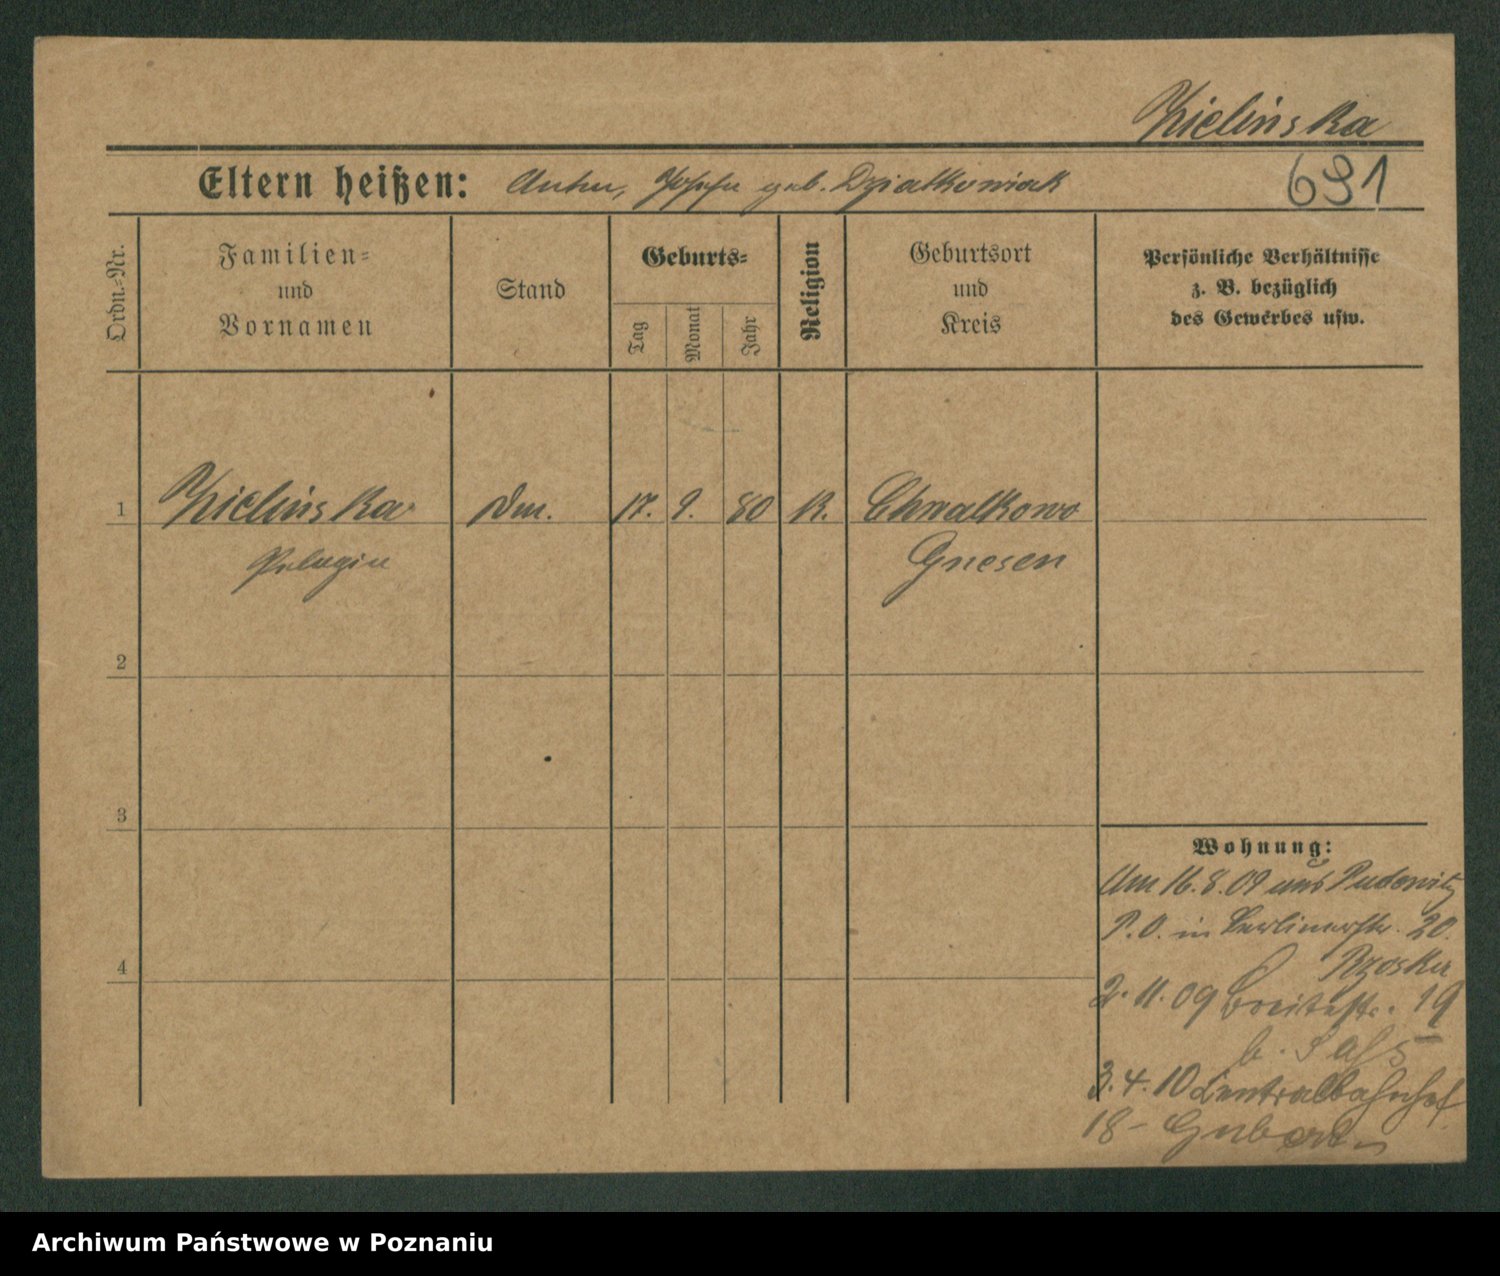 Zielinska
691
Eltern heißen: Anton, Josefa geb. Dzialkowiak
Ordn.-Nr.
Familien-
und
Vornamen
Stand
Geburts-
Tag
Monat
Jahr
Religion
Geburtsort
und
Kreis
Persönliche Verhältnisse
z. B. bezüglich
des Gewerbes usw.
1 Zielinska 17. 9. 80 K. Chwalkowo
Pelagia Gnesen
2
3
4
Wohnung:
Am 16.8.09 aus Pudewitz
P.O. in Berlinerstr. 20.
2.11.09 Breitestr. 19
b.
3.4.10 Centralbahnhof
18-
Archiwum Państwowe w Poznaniu